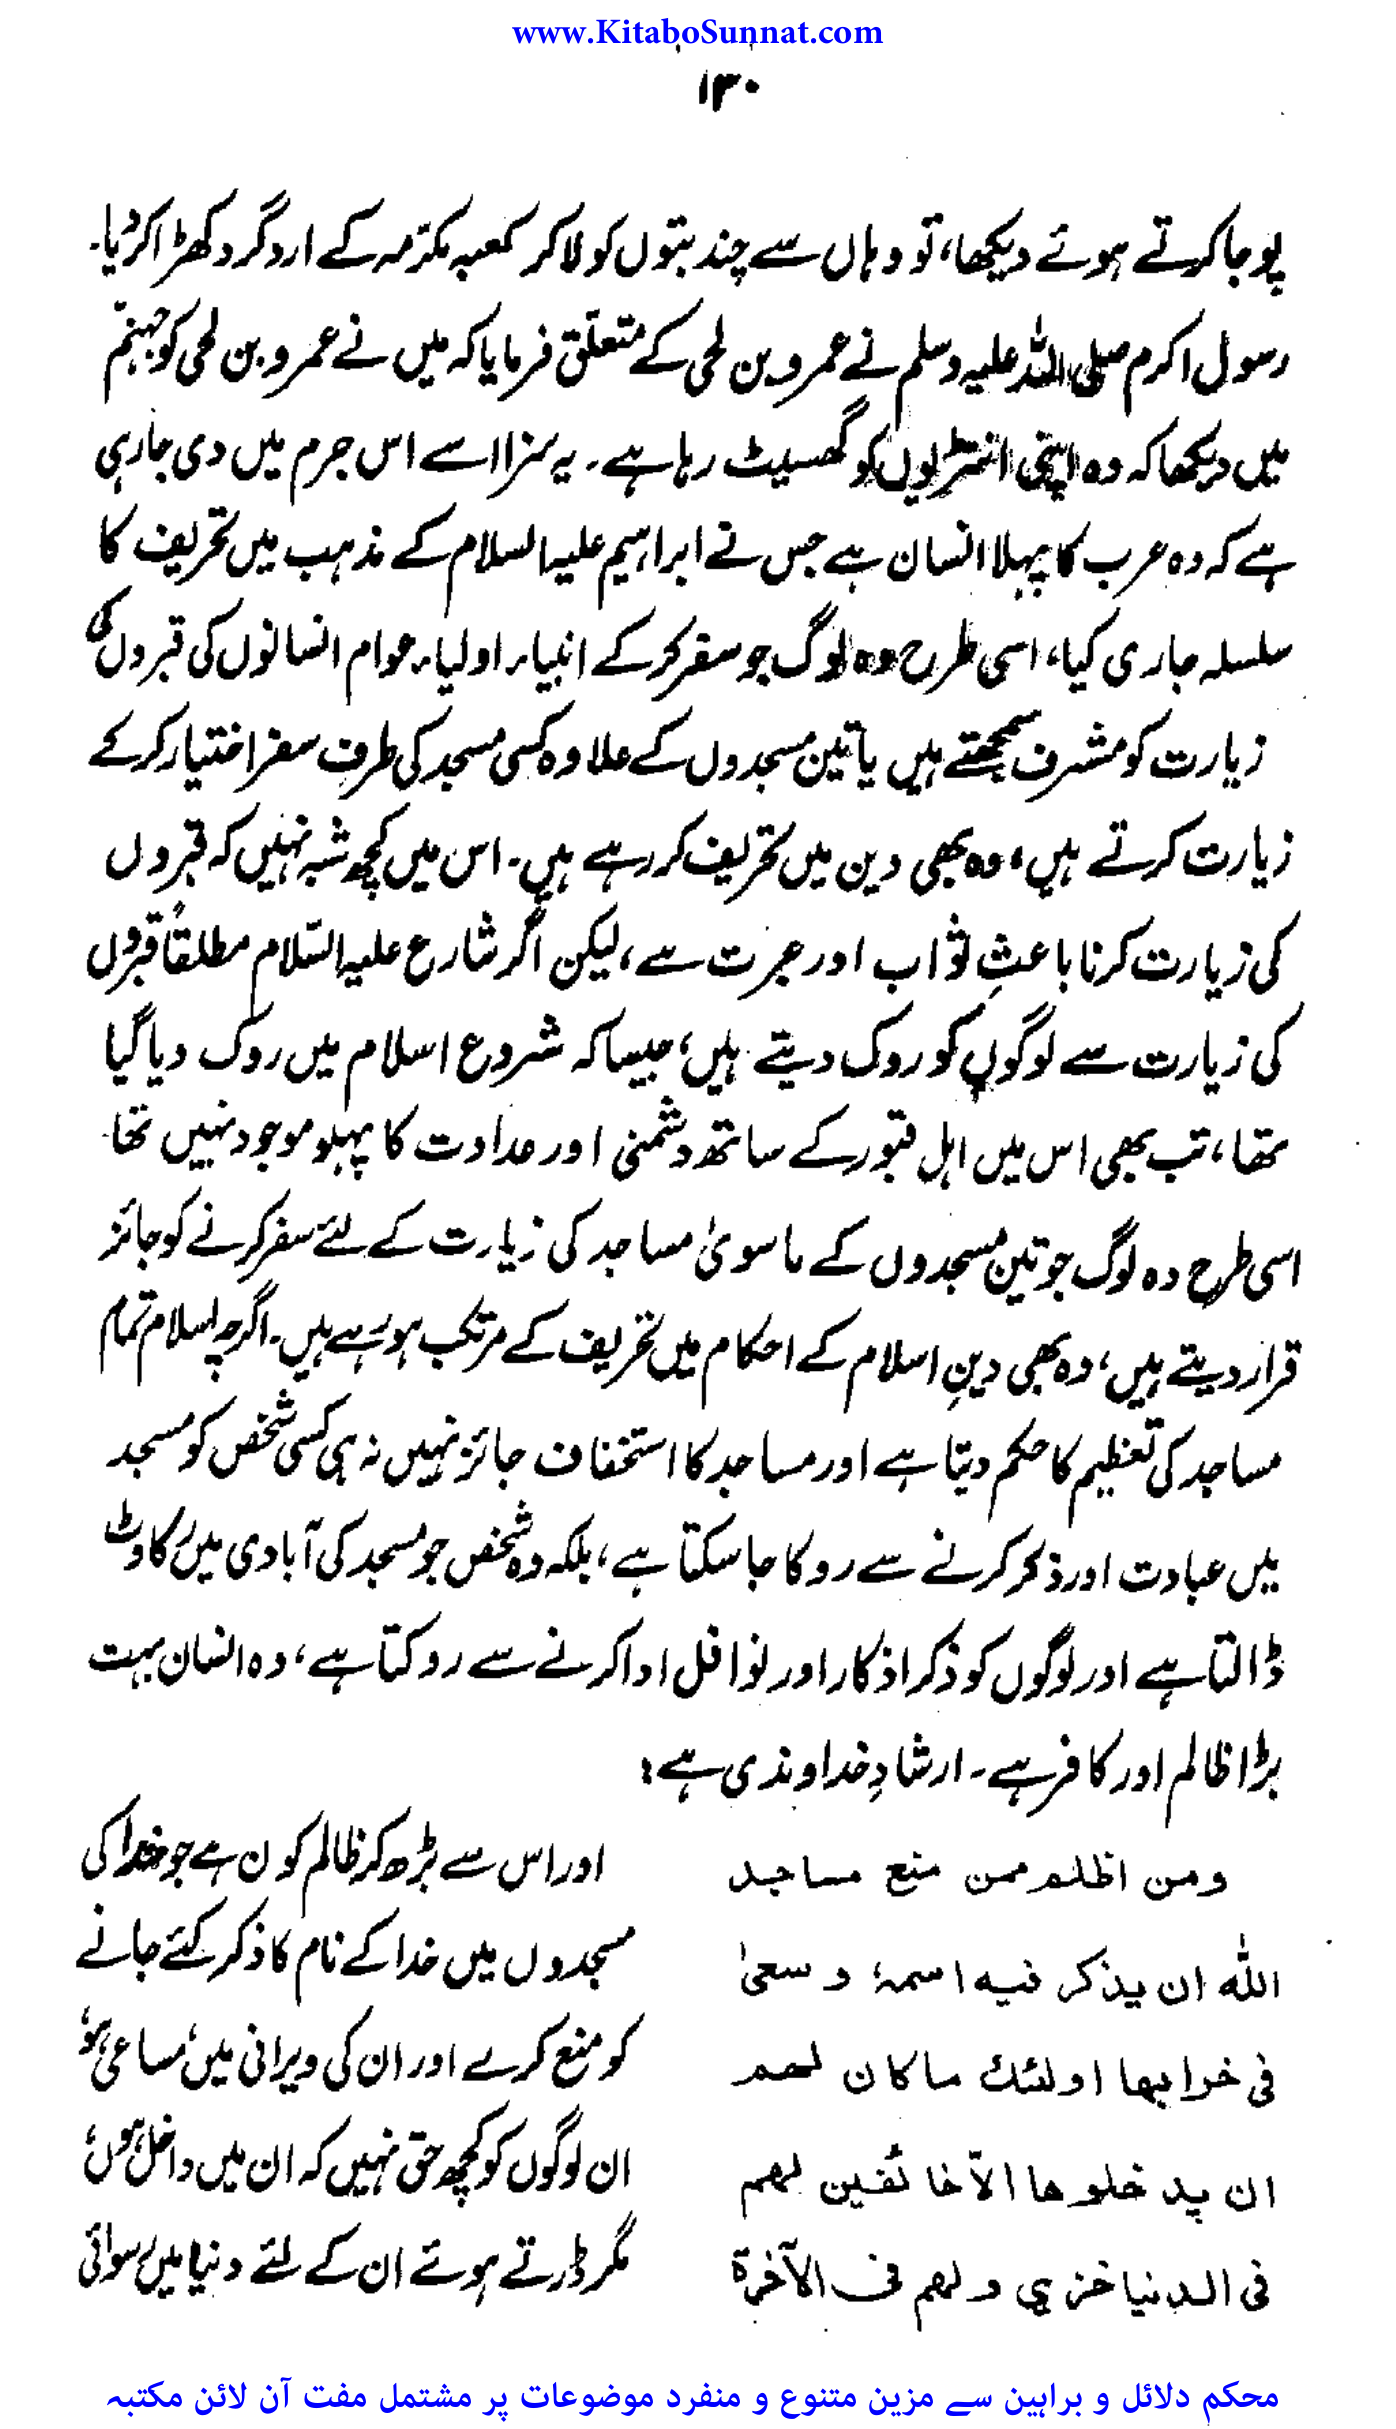 www.KitaboSunnat.com
۱۳۰
پوجا کرتے ہوئے دیکھا، تو وہاں سے چند بتوں کو لا کر کعبہ مکرّمہ کے ارد گرد کھڑا کر دیا۔
رسول اکرم صلی اللہ علیہ وسلم نے عمرو بن لحی کے متعلّق فرمایا کہ میں نے عمرو بن لحی کو جہنّم
میں دیکھا کہ وہ اپنی انتڑیوں کو گھسیٹ رہا ہے۔ یہ سزا اسے اس جرم میں دی جا رہی
ہے کہ وہ عرب کا پہلا انسان ہے جس نے ابراہیم علیہ السلام کے مذہب میں تحریف کا
سلسلہ جاری کیا، اسی طرح وہ لوگ جو سفر کر کے انبیاء، اولیاء، عوام انسانوں کی قبروں کی
زیارت کو مشرف سمجھتے ہیں یا تین مسجدوں کے علاوہ کسی مسجد کی طرف سفر اختیار کر کے
زیارت کرتے ہیں، وہ بھی دین میں تحریف کر رہے ہیں۔ اس میں کچھ شبہ نہیں کہ قبروں
کی زیارت کرنا باعثِ ثواب اور عبرت سے، لیکن اگر شارع علیہ السّلام مطلقاً قبروں
کی زیارت سے لوگوں کو روک دیتے ہیں، جیسا کہ شروع اسلام میں روک دیا گیا
تھا، تب بھی اس میں اہل قبور کے ساتھ دشمنی اور عداوت کا پہلو موجود نہیں تھا
اسی طرح وہ لوگ جو تین مسجدوں کے ماسویٰ مساجد کی زیارت کے لئے سفر کرنے کو جائز
قرار دیتے ہیں، وہ بھی دینِ اسلام کے احکام میں تحریف کے مرتکب ہو رہے ہیں۔ اگرچہ اسلام تمام
مساجد کی تعظیم کا حکم دیتا ہے اور مساجد کا استخفاف جائز نہیں نہ ہی کسی شخص کو مسجد
میں عبادت اور ذکر کرنے سے روکا جا سکتا ہے، بلکہ وہ شخص جو مسجد کی آبادی میں رُکاوٹ
ڈالتا ہے اور لوگوں کو ذکر اذکار اور نوافل ادا کرنے سے روکتا ہے، وہ انسان بہت
بڑا ظالم اور کافر ہے۔ ارشادِ خداوندی ہے:
ومن اظلم ممن منع مساجد
اللّٰہ ان یذکر فیہ اسمہٗ و سعیٰ
فی خرابہا اولئک ماکان لھم
ان یدخلوھا الّا خائفین لھم
فی الدنیا خزی ولھم فی الآخرۃ
اور اس سے بڑھ کر ظالم کون ہے جو خدا کی
مسجدوں میں خدا کے نام کا ذکر کئے جانے
کو منع کرے اور ان کی ویرانی میں مساعی ہو،
ان لوگوں کو کچھ حق نہیں کہ ان میں داخل ہوں،
مگر ڈرتے ہوئے ان کے لئے دنیا میں رسوائی
محکم دلائل و براہین سے مزین متنوع و منفرد موضوعات پر مشتمل مفت آن لائن مکتبہ